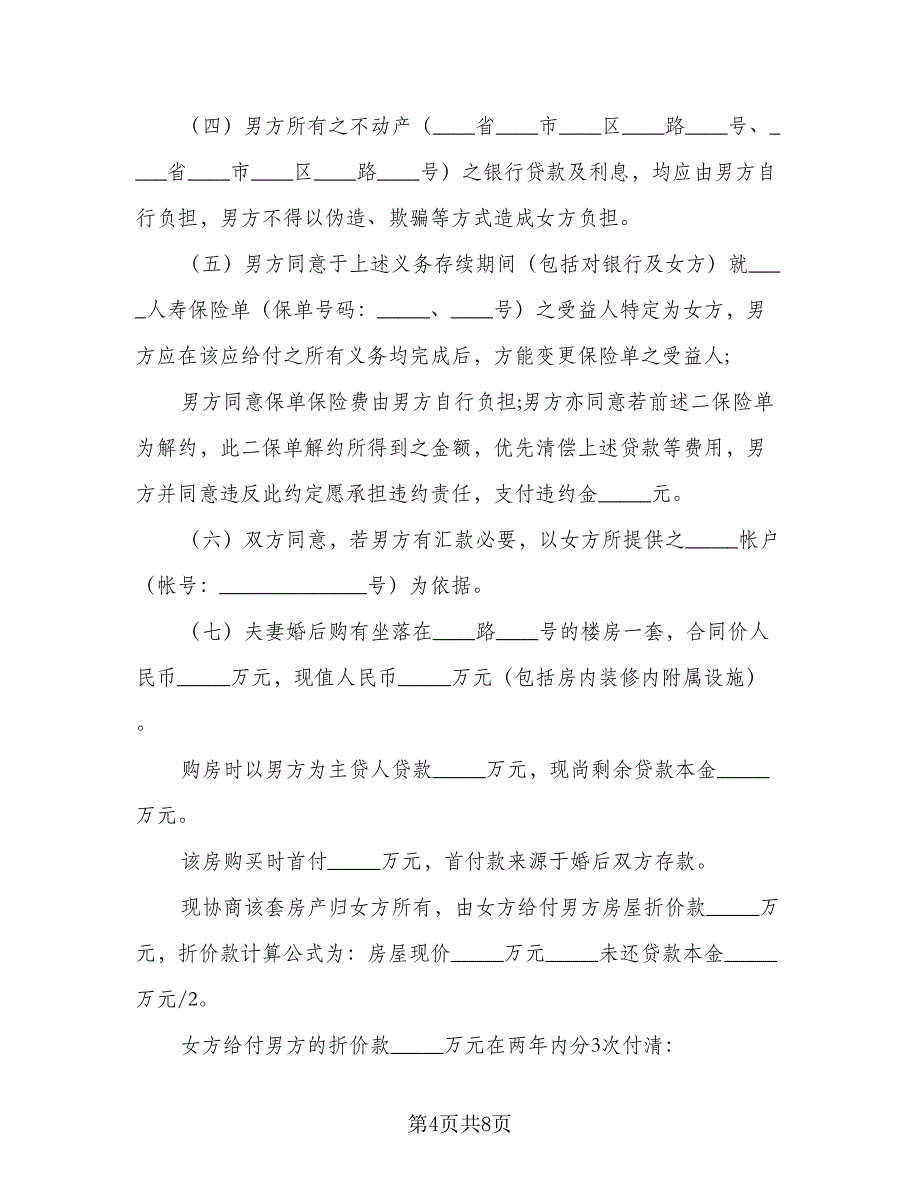 （四）男方所有之不动产（____省____市____区____路____号、_
___省____市____区____路____号）之银行贷款及利息，均应由男方自
行负担，男方不得以伪造、欺骗等方式造成女方负担。
（五）男方同意于上述义务存续期间（包括对银行及女方）就___
_人寿保险单（保单号码：_____、____号）之受益人特定为女方，男
方应在该应给付之所有义务均完成后，方能变更保险单之受益人;
男方同意保单保险费由男方自行负担;男方亦同意若前述二保险单
为解约，此二保单解约所得到之金额，优先清偿上述贷款等费用，男
方并同意违反此约定愿承担违约责任，支付违约金_____元。
（六）双方同意，若男方有汇款必要，以女方所提供之_____帐户
（帐号：______________号）为依据。
（七）夫妻婚后购有坐落在____路____号的楼房一套，合同价人
民币_____万元，现值人民币_____万元（包括房内装修内附属设施）
。
购房时以男方为主贷人贷款_____万元，现尚剩余贷款本金_____
万元。
该房购买时首付_____万元，首付款来源于婚后双方存款。
现协商该套房产归女方所有，由女方给付男方房屋折价款_____万
元，折价款计算公式为：房屋现价_____万元_____未还贷款本金_____
万元/2。
女方给付男方的折价款_____万元在两年内分3次付清：
第4页共8页